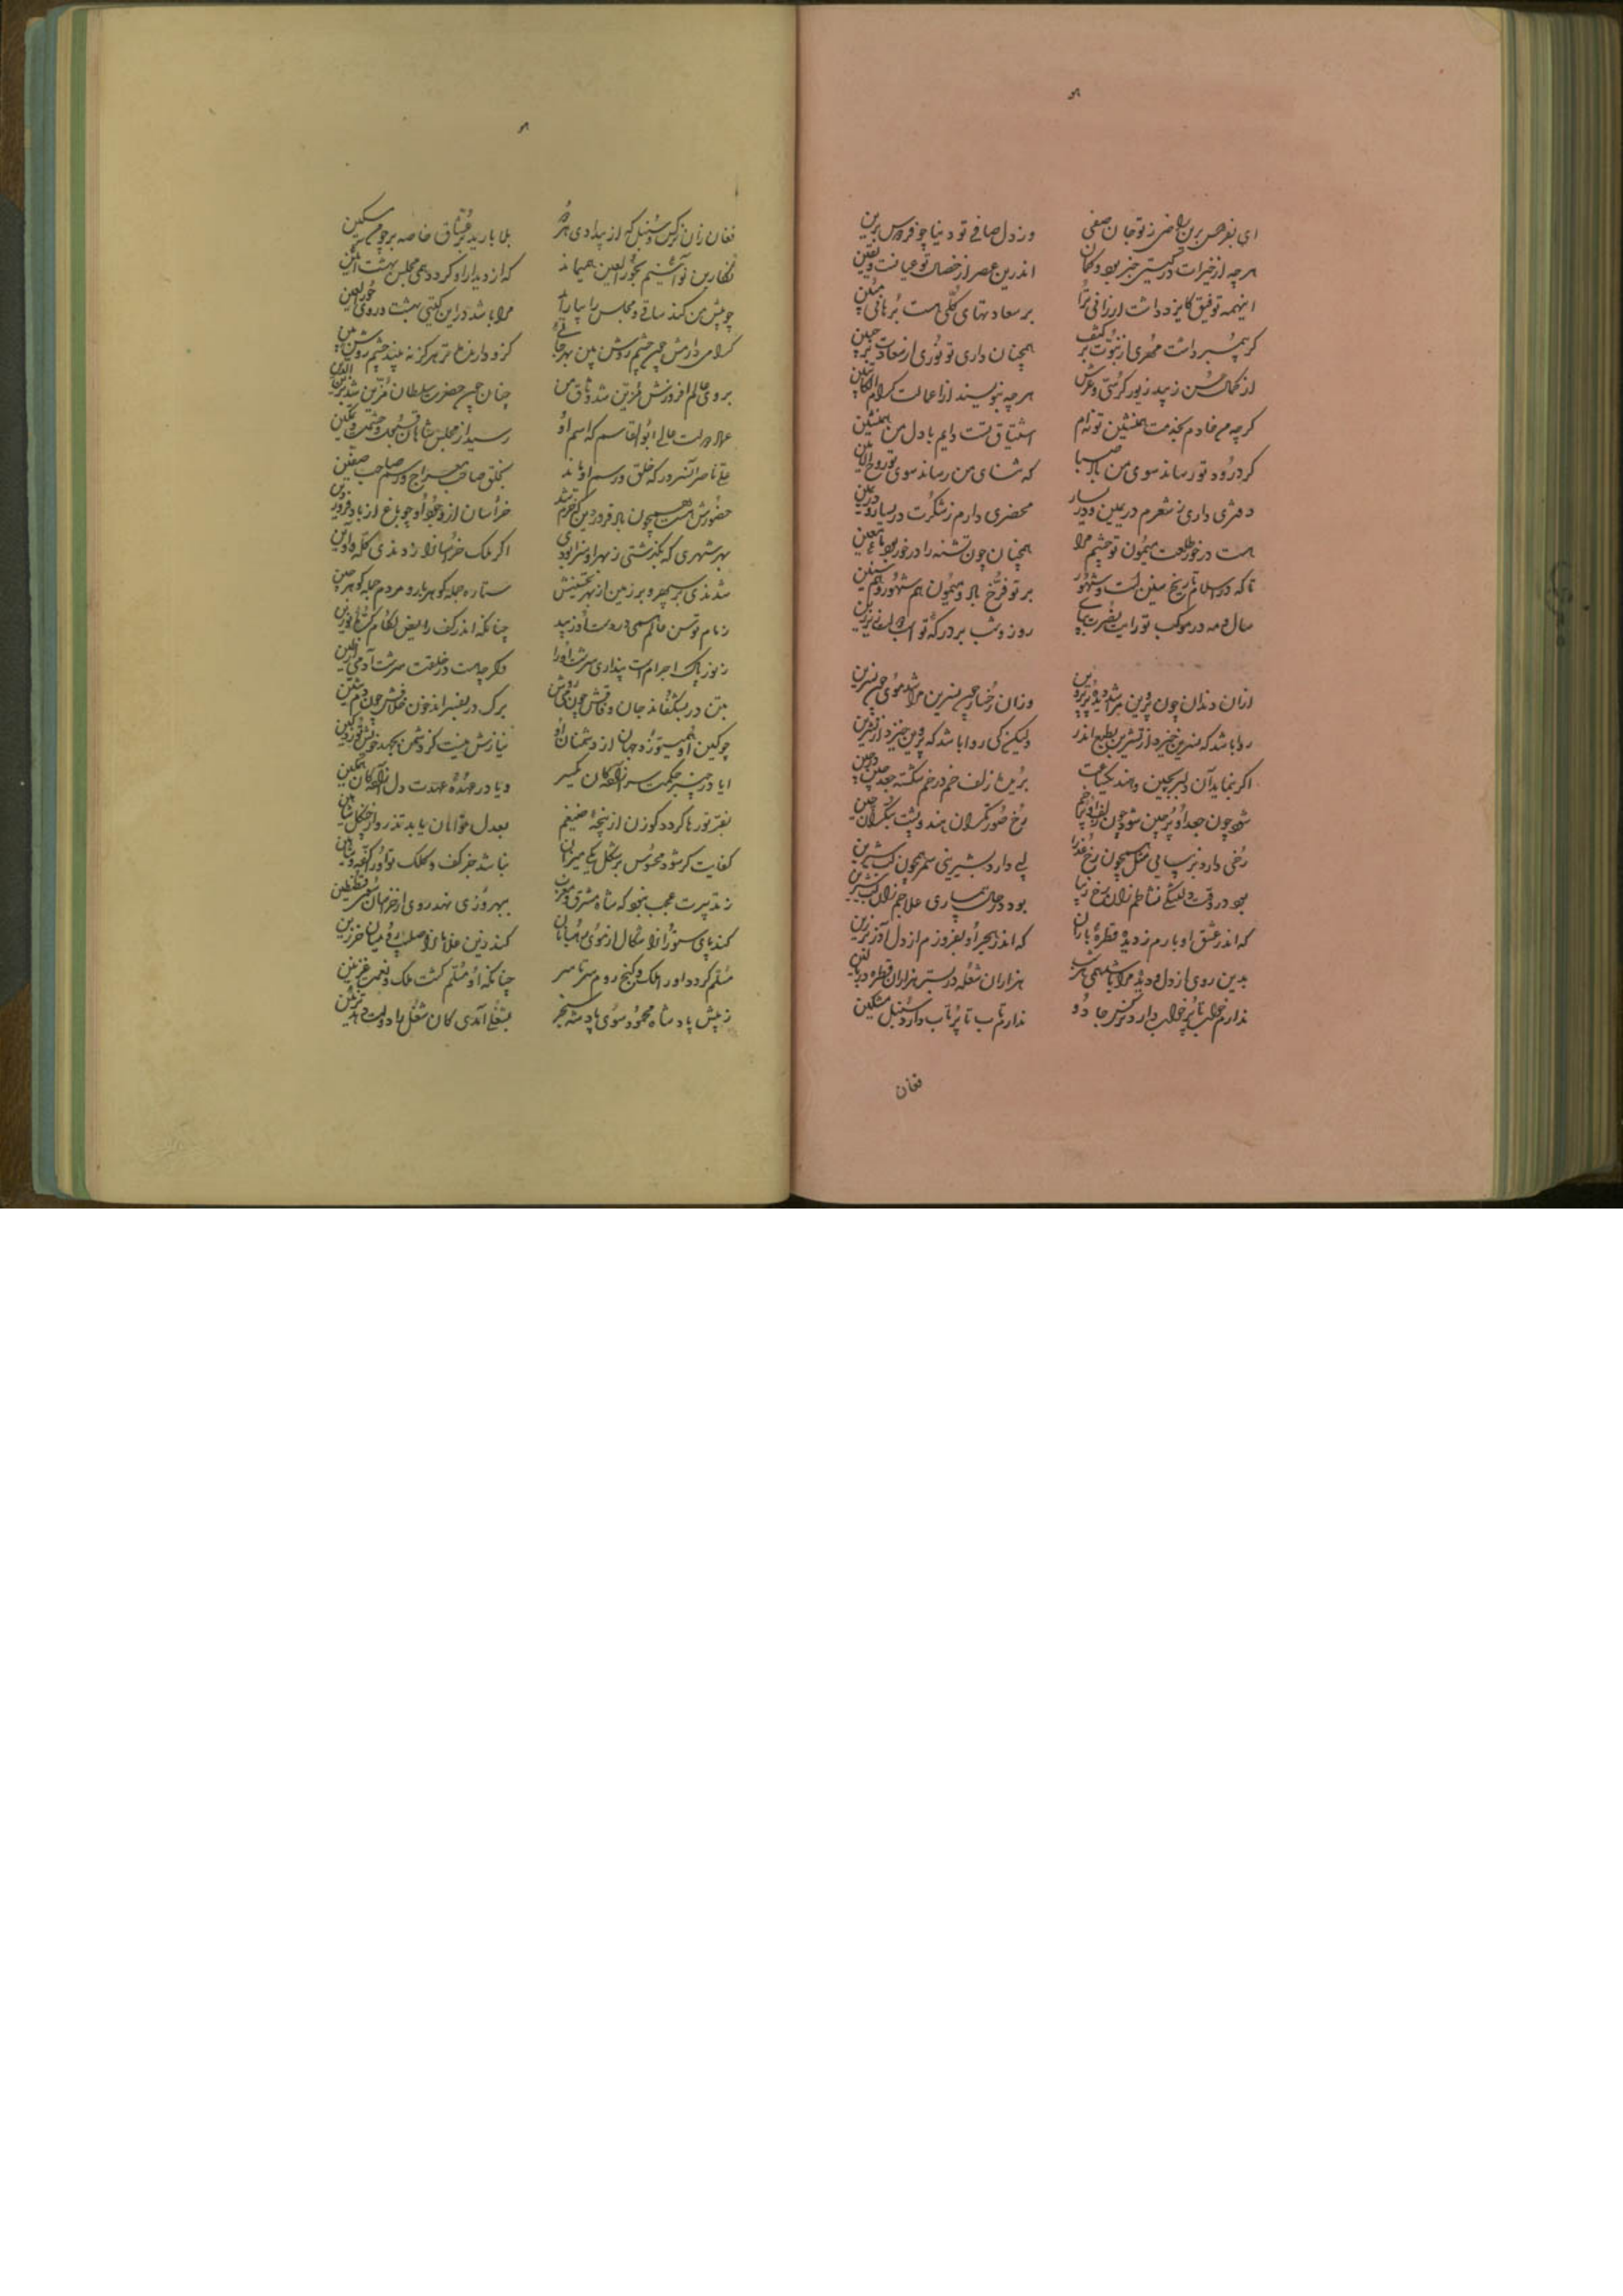 هو
ای بنفس حسن بن راضی ز تو جان صفی وز دل صافی تو دنیا چو فردوس برین
هرچه از خیرات در گیتی خبر بود و گمان اندرین عصر از خصال تو عیانست و یقین
اینهمه توفیق کایزد داشت ارزانی ترا بر سعادتهای کلی هست برهانی مبین
گر پیمبر داشت مهری از نبوت بر کتف همچنان داری تو نوری از سعادت بر جبین
از کمال حسن زیبد زیور کرسی و عرش هرچه بنویسند از اعمالت کرام الکاتبین
گرچه من خادم بخدمت همنشین تو نه‌ام اشتیاق تست دایم با دل من همنشین
گر درود تو رساند سوی من باد صبا که ثنای من رساند سوی تو روح الامین
دفتری داری ز شعرم در یمین و در یسار محضری دارم ز شکرت در یسار و در یمین
هست در خور طلعت میمون تو چشم مرا همچنان چون تشنه را در خور بود ماء معین
تا که در اسلام تاریخ سنین است و شهور بر تو فرخ باد و میمون هم شهور و هم سنین
سال و مه در موکب تو رایت نصرت بپای روز و شب بر درگه تو اسب دولت زیر زین
ازان دندان چون پروین مرا شد دیده پر پروین وزان رخسار چون نسرین مرا شد موی چون نسرین
روا باشد که نسرین خیزد از نسرین بطبع اندر ولیکن کی روا باشد که پروین خیزد از پروین
اگر بنماید آن دلبر بچین و هند یکساعت برین زلف خم در خم شکسته جعد چین در چین
شود چون جعد او پر چین شود چون زلف او پر خم رخ صورتگران هند و پشت بتگران چین
رخی دارد بزیبایی بمثل همچون رخ عذرا لبی دارد بشیرینی سمر همچون لب شیرین
بود در وقت دلتنگی نشاطم زان رخ زیبا بود در حال بیماری علاجم زان لب شیرین
که اندر عشق او بارم ز دیده قطرهٔ باران که اندر هجر او بفروزم از دل آذر برزین
بدین روی از دل و دیده مرا باشد همی هر شب هزاران شعله در بستر هزاران قطره در بالین
ندارم خواب تا پر خواب دارد نرگس جادو ندارم تاب تا پر تاب دارد سنبل مشکین
فغان
هو
فغان زان نرگس و سنبل که از بیدادی هر دو بلا بارید بر عشاق خاصه بر چو من مسکین
نگارین نوآئینم بحور العین همی ماند که از دیدار او گردد همی مجلس بهشت آئین
چو پیش من کند ساقی و مجلس را بیاراید مرا باشد در این گیتی بهشت و روی حور العین
گرامی دارمش چون چشم روشن بین بهر جائی کزو دارنده‌تر هرگز نه بیند چشم روشن بین
بروی عالم افروزش مزین شد وثاق من چنان چون حضرت سلطان مزین شد بزین الدین
عماد دولت عالی ابوالقاسم که اسم او رسید از مجلس شاهان بتبجیل و تمکین
علی ناصر آنسرور که خلق و رسم او ماند بخلق صاحب معراج و رسم صاحب صفین
حضورش هست همچون باد فروردین کزو خرم شد خراسان از وجود او چو باغ از باد فروردین
بهر شهری که بگذشتی ز بهر او سزا بودی اگر ملک خراسان را زدندی کله و آئین
شدندی بر سپهر و بر زمین از بهر تحسینش ستاره جمله گوهر بار و مردم جمله گوهر چین
زمام توسن عالم همی در دست او زیبد چنانکه اندر کف رایض لگام کرهٔ نوزین
ز نور پاک اجرام است پنداری سرشت او را وگرچه هست در خلقت سرشت آدمی از طین
بتن در بشکفاند جان وفاقش چون می روشن برگ در بفسراند خون خلافش چون دم تنین
چو کین او همی توزد جهان از دشمنان او نیازش نیست کز دشمن بجهد خویش توزد کین
ایا در چنبر حکمت سر آزادگان یکسر ویا در عهدهٔ عهدت دل آزادگان همگین
بفر تو رها گردد گوزن از پنجهٔ ضیغم بعدل تو امان یابد تذرو از چنگل شاهین
کفایت گر شود محسوس بر شکل یکی میزان نباشد جز کف و کلک تو آنرا کفه و شاهین
ز تدبیرت عجب نبود که شاه مشرق و مغرب ببهروزی نهد روی از خراسان سوی قسطنطین
کند پای ستوران را شکال از موی رهبانان کند زین غلامان را صلیب و میان خرزین
مسلم گردد او را ملک و گنج روم سرتاسر چنانکه او را مسلم گشت ملک و نعمت غزنین
ز پیش پادشاه محمود سوی پادشه سنجر بشغلی آمدی کان شغل را دولت دهد تزئین